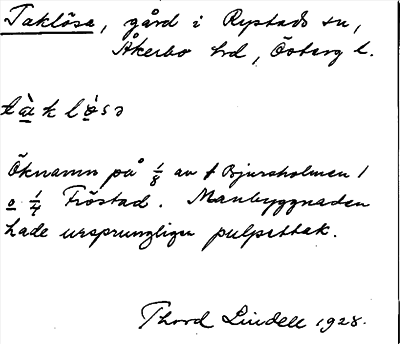 Taklösa, gård i Rystads sn,
Åkerbo hrd, Österg l.
tàklö̀sə
Öknamn på 1/8 av f Bjursholmen 1
o 1/4 Fröstad. Manbyggnaden
hade ursprungligen pulpettak.
Thord Lindell 1928.